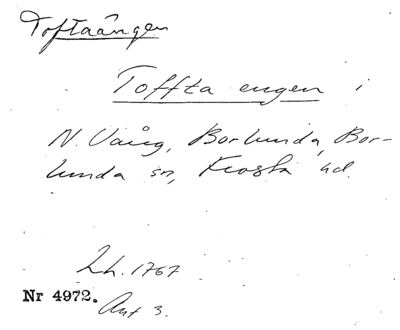 Toftaängen
Toffta engen i
N. Vång, Borlunda, Bor-
lunda sn, Frosta hd.
Lh. 1767
Nr 4972.
Ant 3.